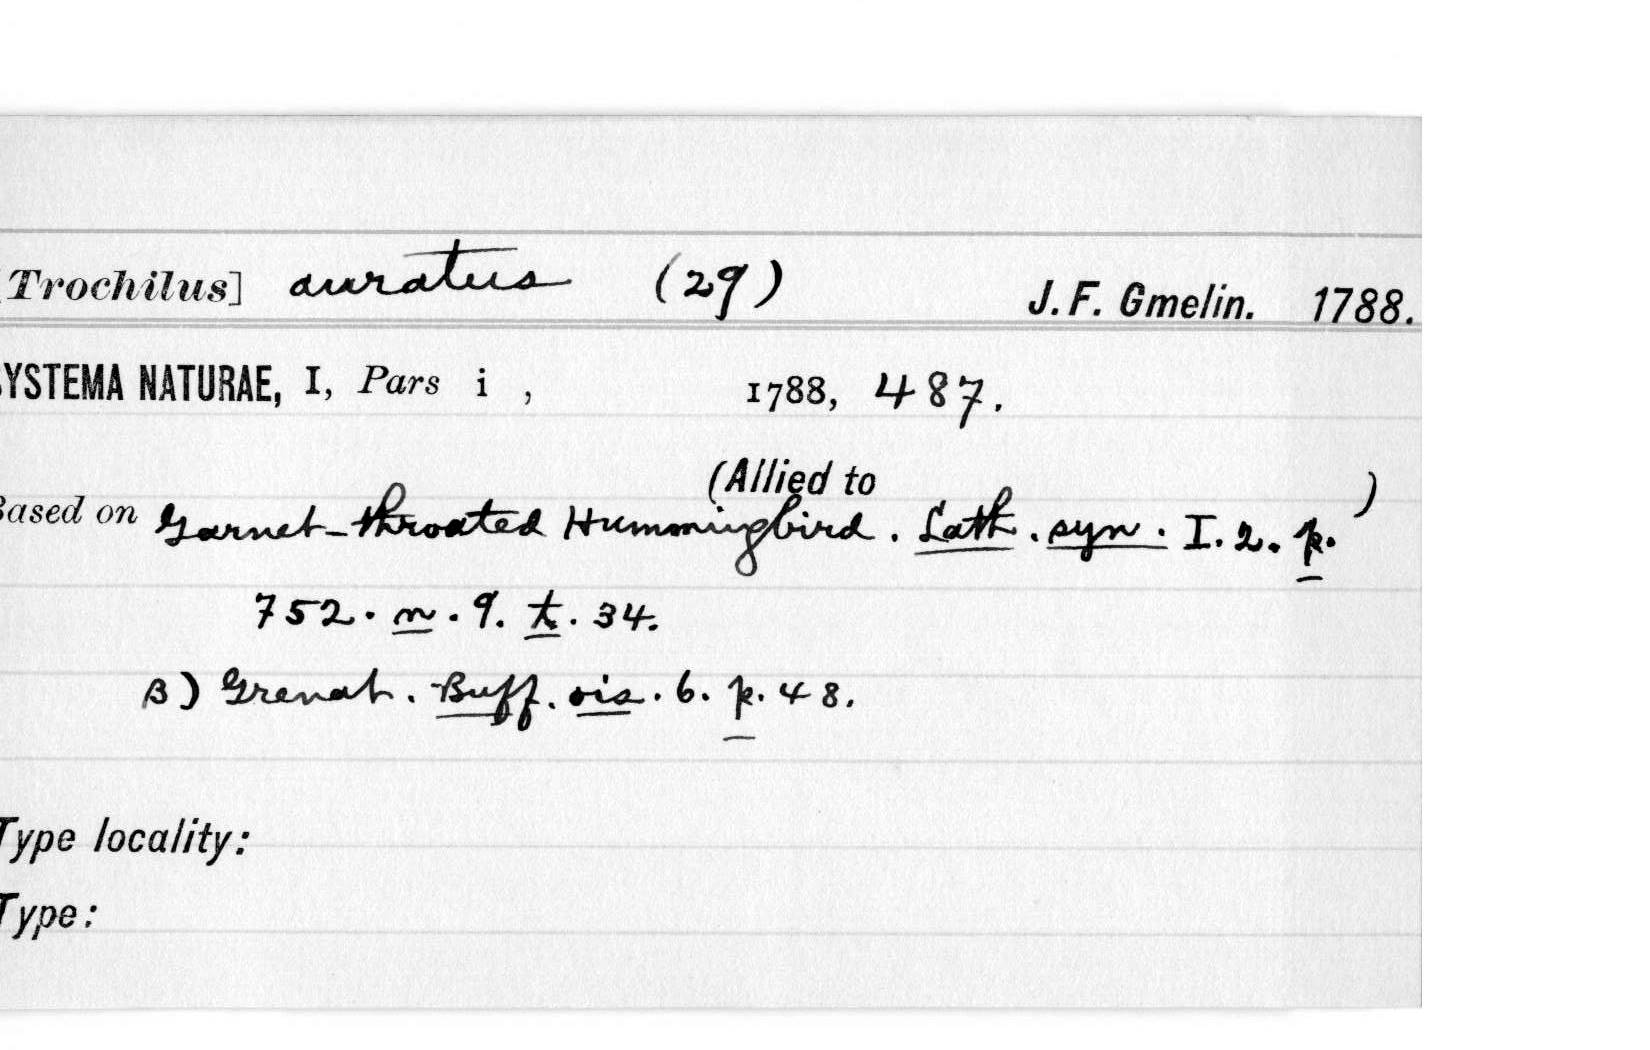 Trochilus] auratus (29) J. F. Gmelin. 1788.
SYSTEMA NATURAE, I, Pars i , 1788, 487.
(Allied to )
Based on Garnet-throated Hummingbird. Lath. syn. I. 2. p.
752. n. 9. t. 34.
β) Grenat. Buff. ois. 6. p. 48.
Type locality:
Type: